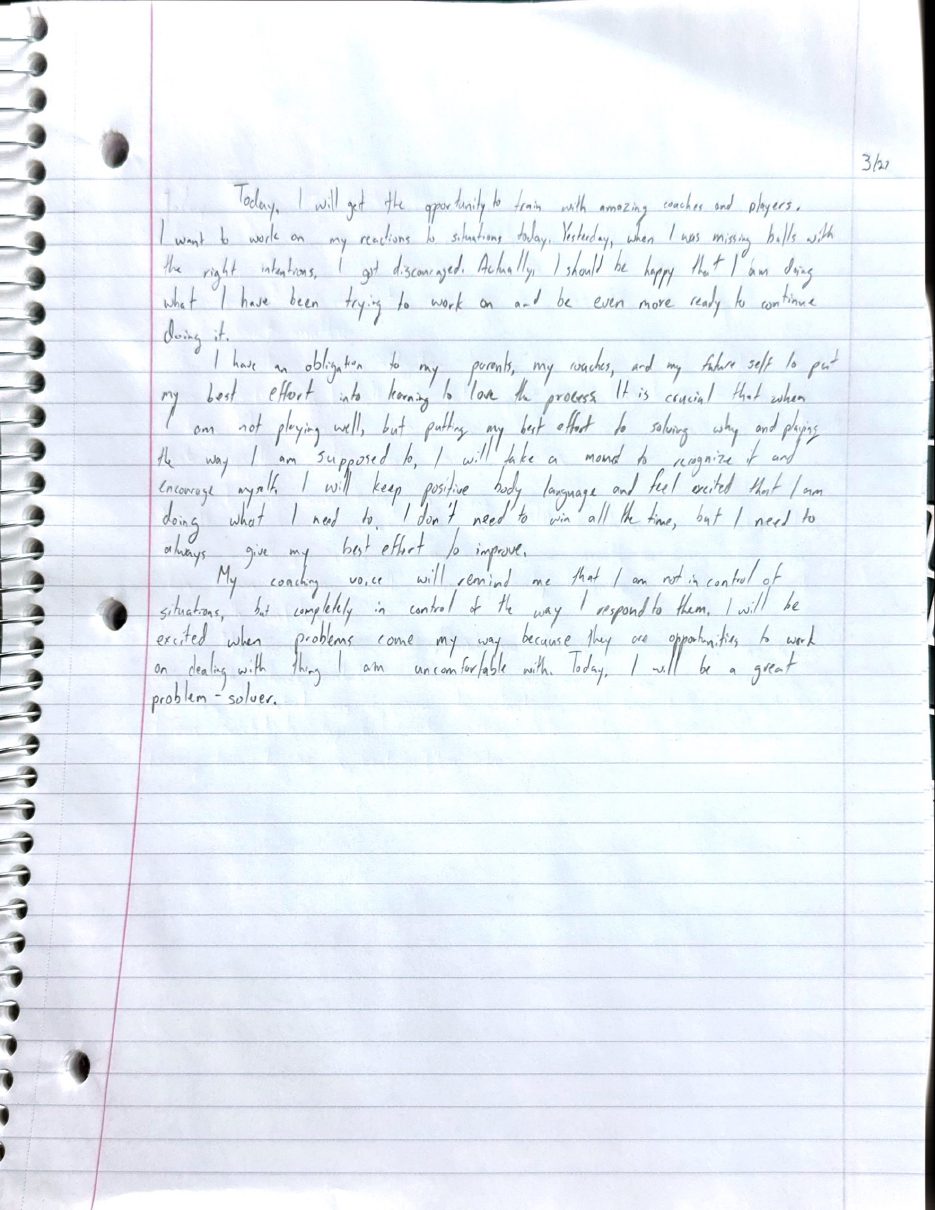 3/27
Today, I will get the opportunity to train with amazing coaches and players.
I want to work on my reactions to situations today. Yesterday, when I was missing balls with
the right intentions, I got discouraged. Actually, I should be happy that I am doing
what I have been trying to work on and be even more ready to continue
doing it.
I have an obligation to my parents, my coaches, and my future self to put
my best effort into learning to love the process. It is crucial that when
I am not playing well, but putting my best effort to solving why and playing
the way I am supposed to, I will take a moment to recognize it and
encourage myself. I will keep positive body language and feel excited that I am
doing what I need to. I don't need to win all the time, but I need to
always give my best effort to improve.
My coaching voice will remind me that I am not in control of
situations, but completely in control of the way I respond to them. I will be
excited when problems come my way because they are opportunities to work
on dealing with thing I am uncomfortable with. Today, I will be a great
problem-solver.